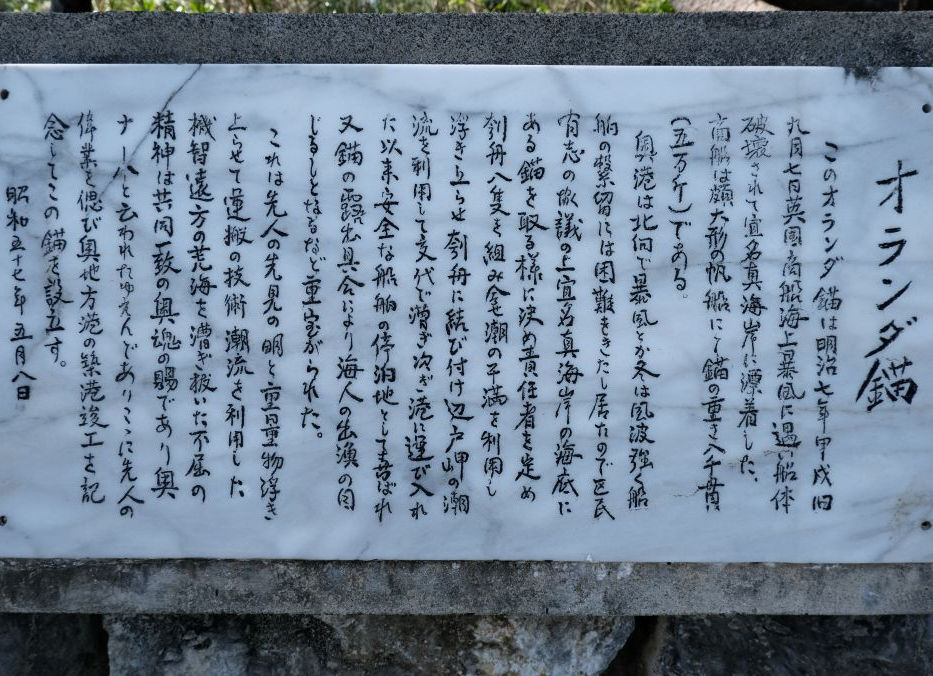 オランダ錨
このオランダ錨は明治七年甲戌旧
九月七日英国商船海上暴風に遇い船体
破壊されて宜名真海岸に漂着した、
商船は頗大形の帆船にて錨の重さ八千貫
(五万斤)である。
奥港は北向で暴風とか冬は風波強く船
舶の繋留には困難をきたし居たので区民
有志の協議の上宜名真海岸の海底に
ある錨を取る様に決め責任者を定め
刳舟八隻を組み合せ潮の干満を利用し
浮き上らせ刳舟に結び付け辺戸岬の潮
流を利用して交代で漕ぎ次ぎ港に運び入れ
た以来安全な船舶の停泊地として喜ばれ
又錨の露出具合により海人の出漁の目
じるしとなるなど重宝がられた。
これは先人の先見の明と重量物浮き
上らせて運搬の技術潮流を利用した
機智遠方の荒海を漕ぎ抜いた不屈の
精神は共同一致の奥魂の賜であり奥
ナーハと云われたゆえんでありここに先人の
偉業を偲び奥地方港の築港竣工を記
念してこの錨を設立す。
昭和五十七年五月八日